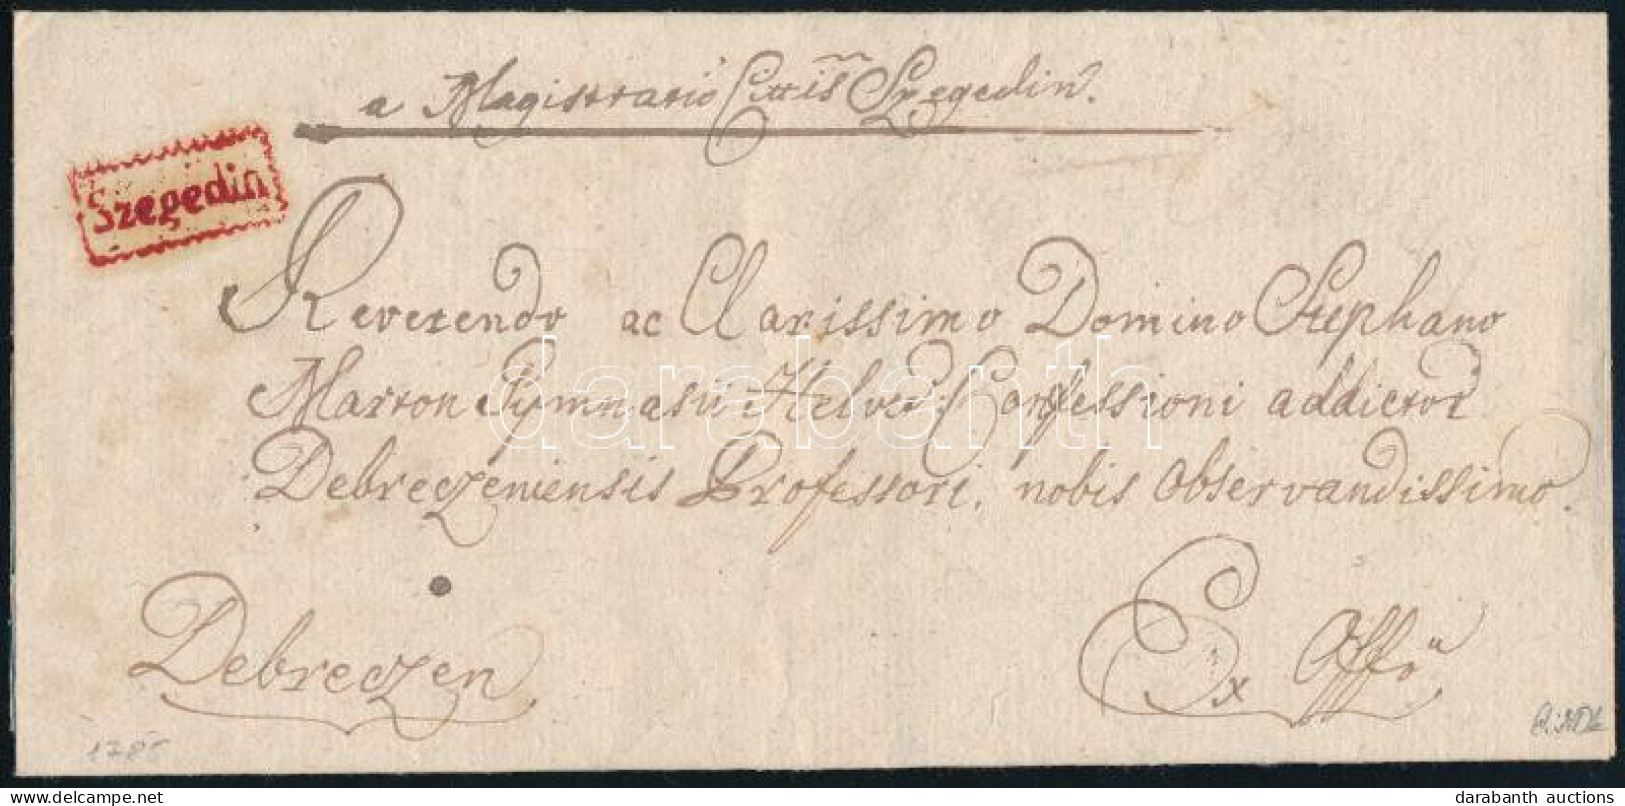 a Magistratio Cittis Szegedin.
Szegedin
Reverendo ac Clarissimo Domino Stephano
Marton Gymnasii Helvet: Confessioni addictor
Debreczeniensis Professori, nobis Observandissimo.
Debreczen
Ex Offo
darabanth
darabanth auctions